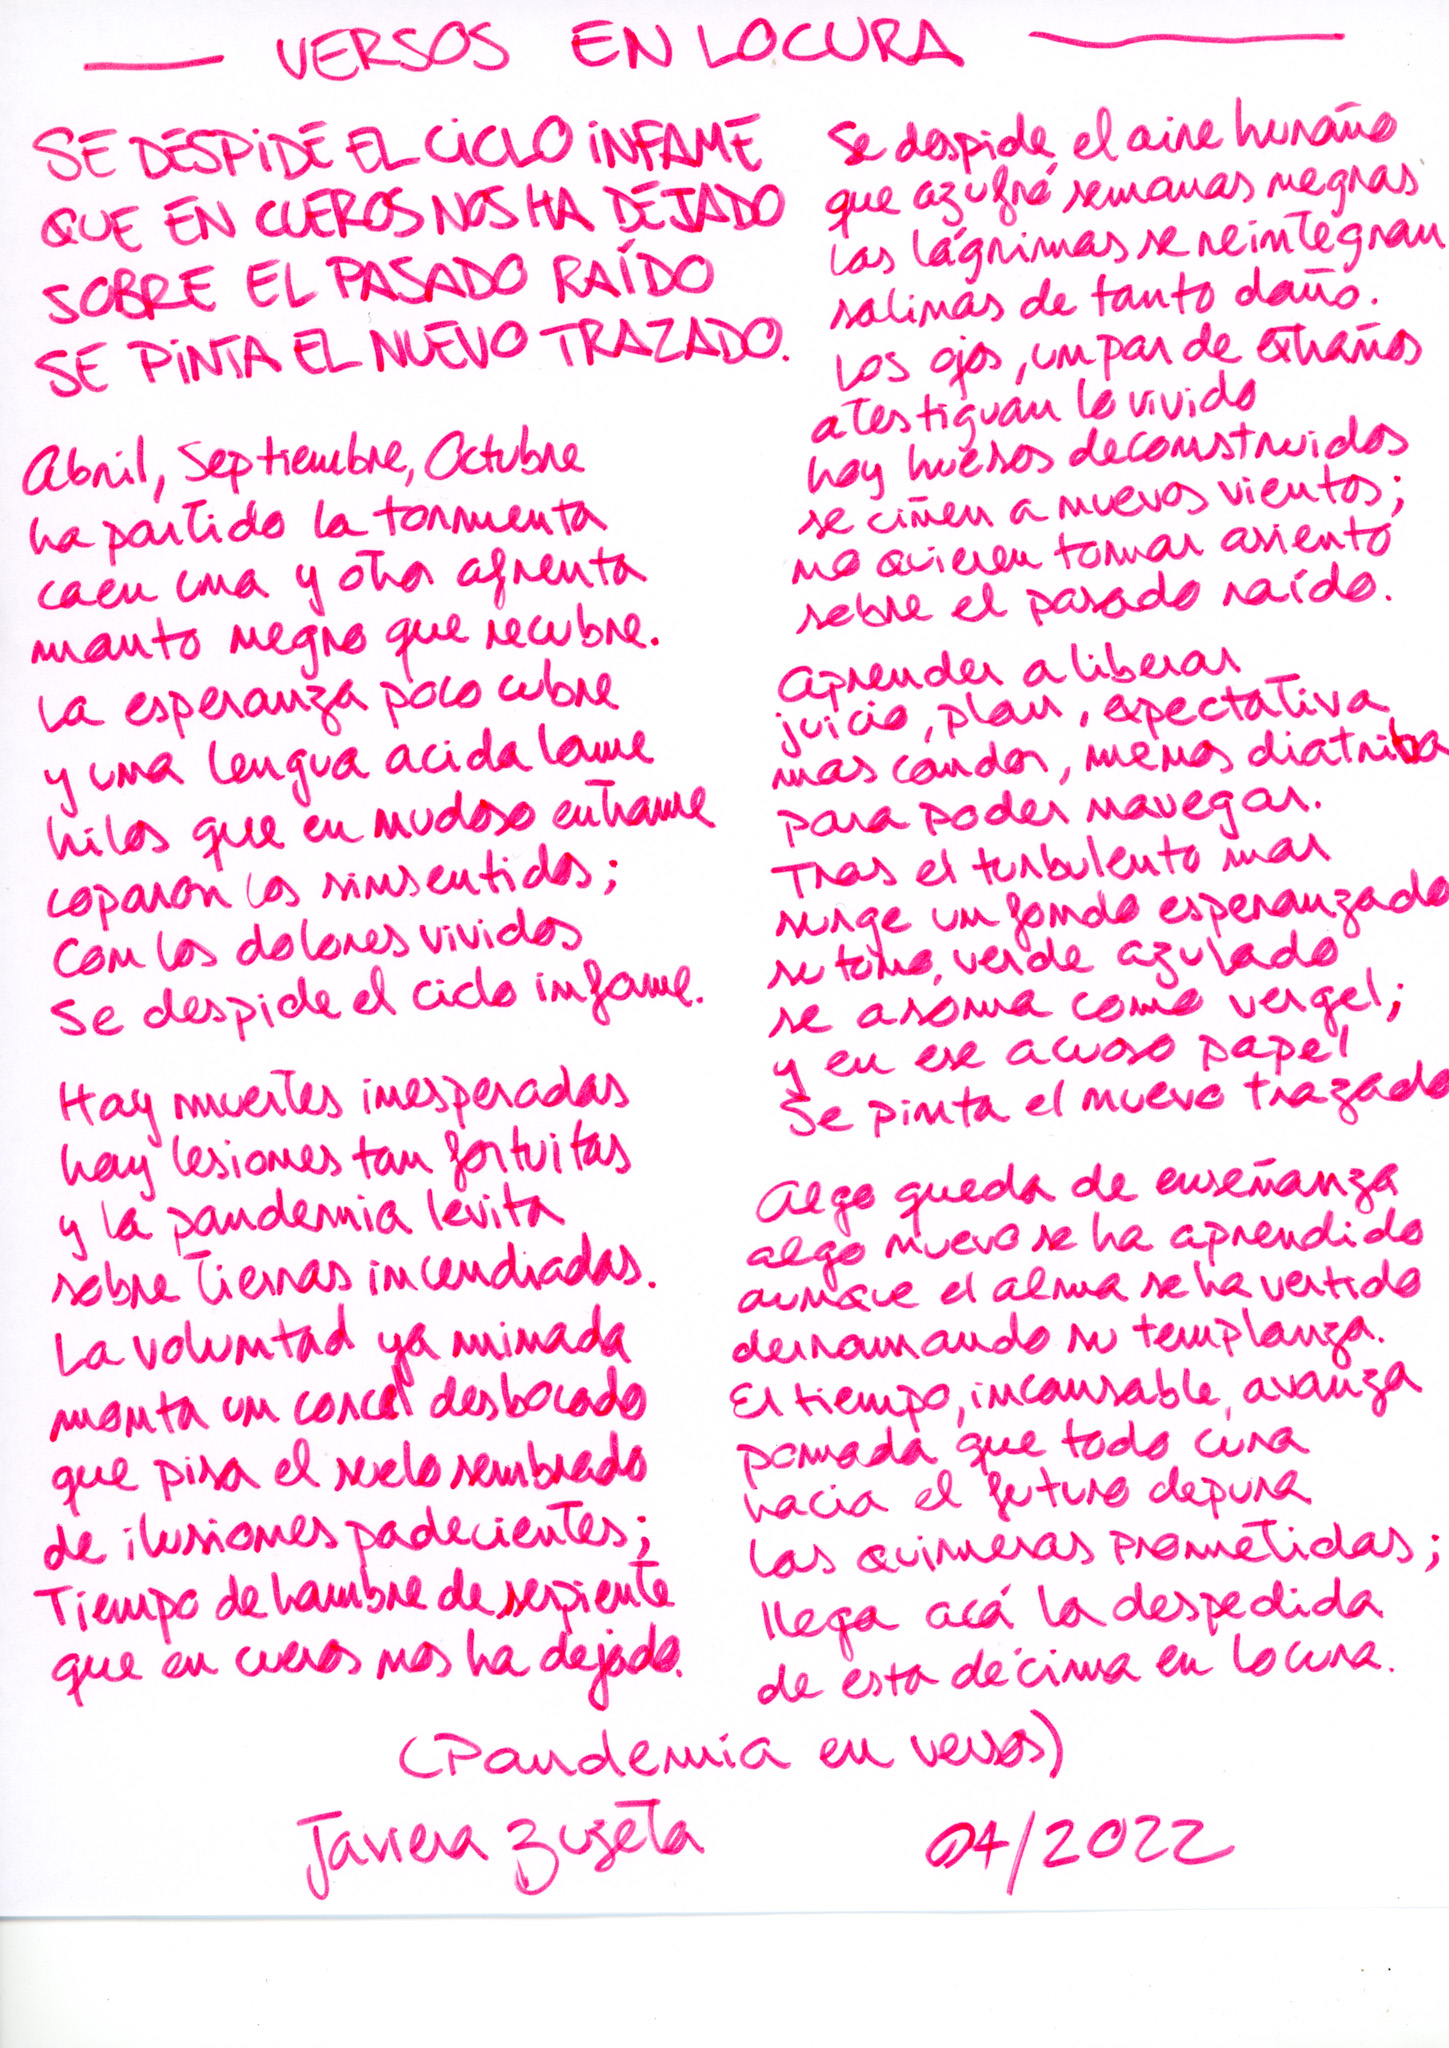 VERSOS EN LOCURA
SE DESPIDE EL CICLO INFAME
QUE EN CUEROS NOS HA DEJADO
SOBRE EL PASADO RAÍDO
SE PINTA EL NUEVO TRAZADO.
Abril, Septiembre, Octubre
ha partido la tormenta
caen una y otra afrenta
manto negro que recubre.
La esperanza poco cubre
y una lengua acida lame
hilos que en mudoso entrame
coparon los sinsentidos;
Con los dolores vividos
Se despide el ciclo infame.
Hay muertes inesperadas
hay lesiones tan fortuitas
y la pandemia levita
sobre tierras incendiadas.
La voluntad ya minada
monta un corcel desbocado
que pisa el suelo sembrado
de ilusiones padecientes;
Tiempo de hambre de serpiente
que en cueros nos ha dejado.
Se despide, el aire huraño
que azufró semanas negras
las lágrimas se reintegran
salinas de tanto daño.
Los ojos, un par de extraños
atestiguan lo vivido
hay huesos deconstruidos
se ciñen a nuevos vientos;
no quieren tomar asiento
sobre el pasado raído.
Aprender a liberar
juicio, plan, expectativa
mas candor, menos diatriba
para poder navegar.
Tras el turbulento mar
surge un fondo esperanzado
su tono, verde azulado
se asoma como vergel;
y en ese acuoso papel
Se pinta el nuevo trazado
Algo queda de enseñanza
algo nuevo se ha aprendido
aunque el alma se ha vertido
derramando su templanza.
El tiempo, incansable, avanza
pomada que todo cura
hacia el futuro depura
las quimeras prometidas;
llega acá la despedida
de esta décima en locura.
(Pandemia en versos)
Javiera Zuzeta 04/2022